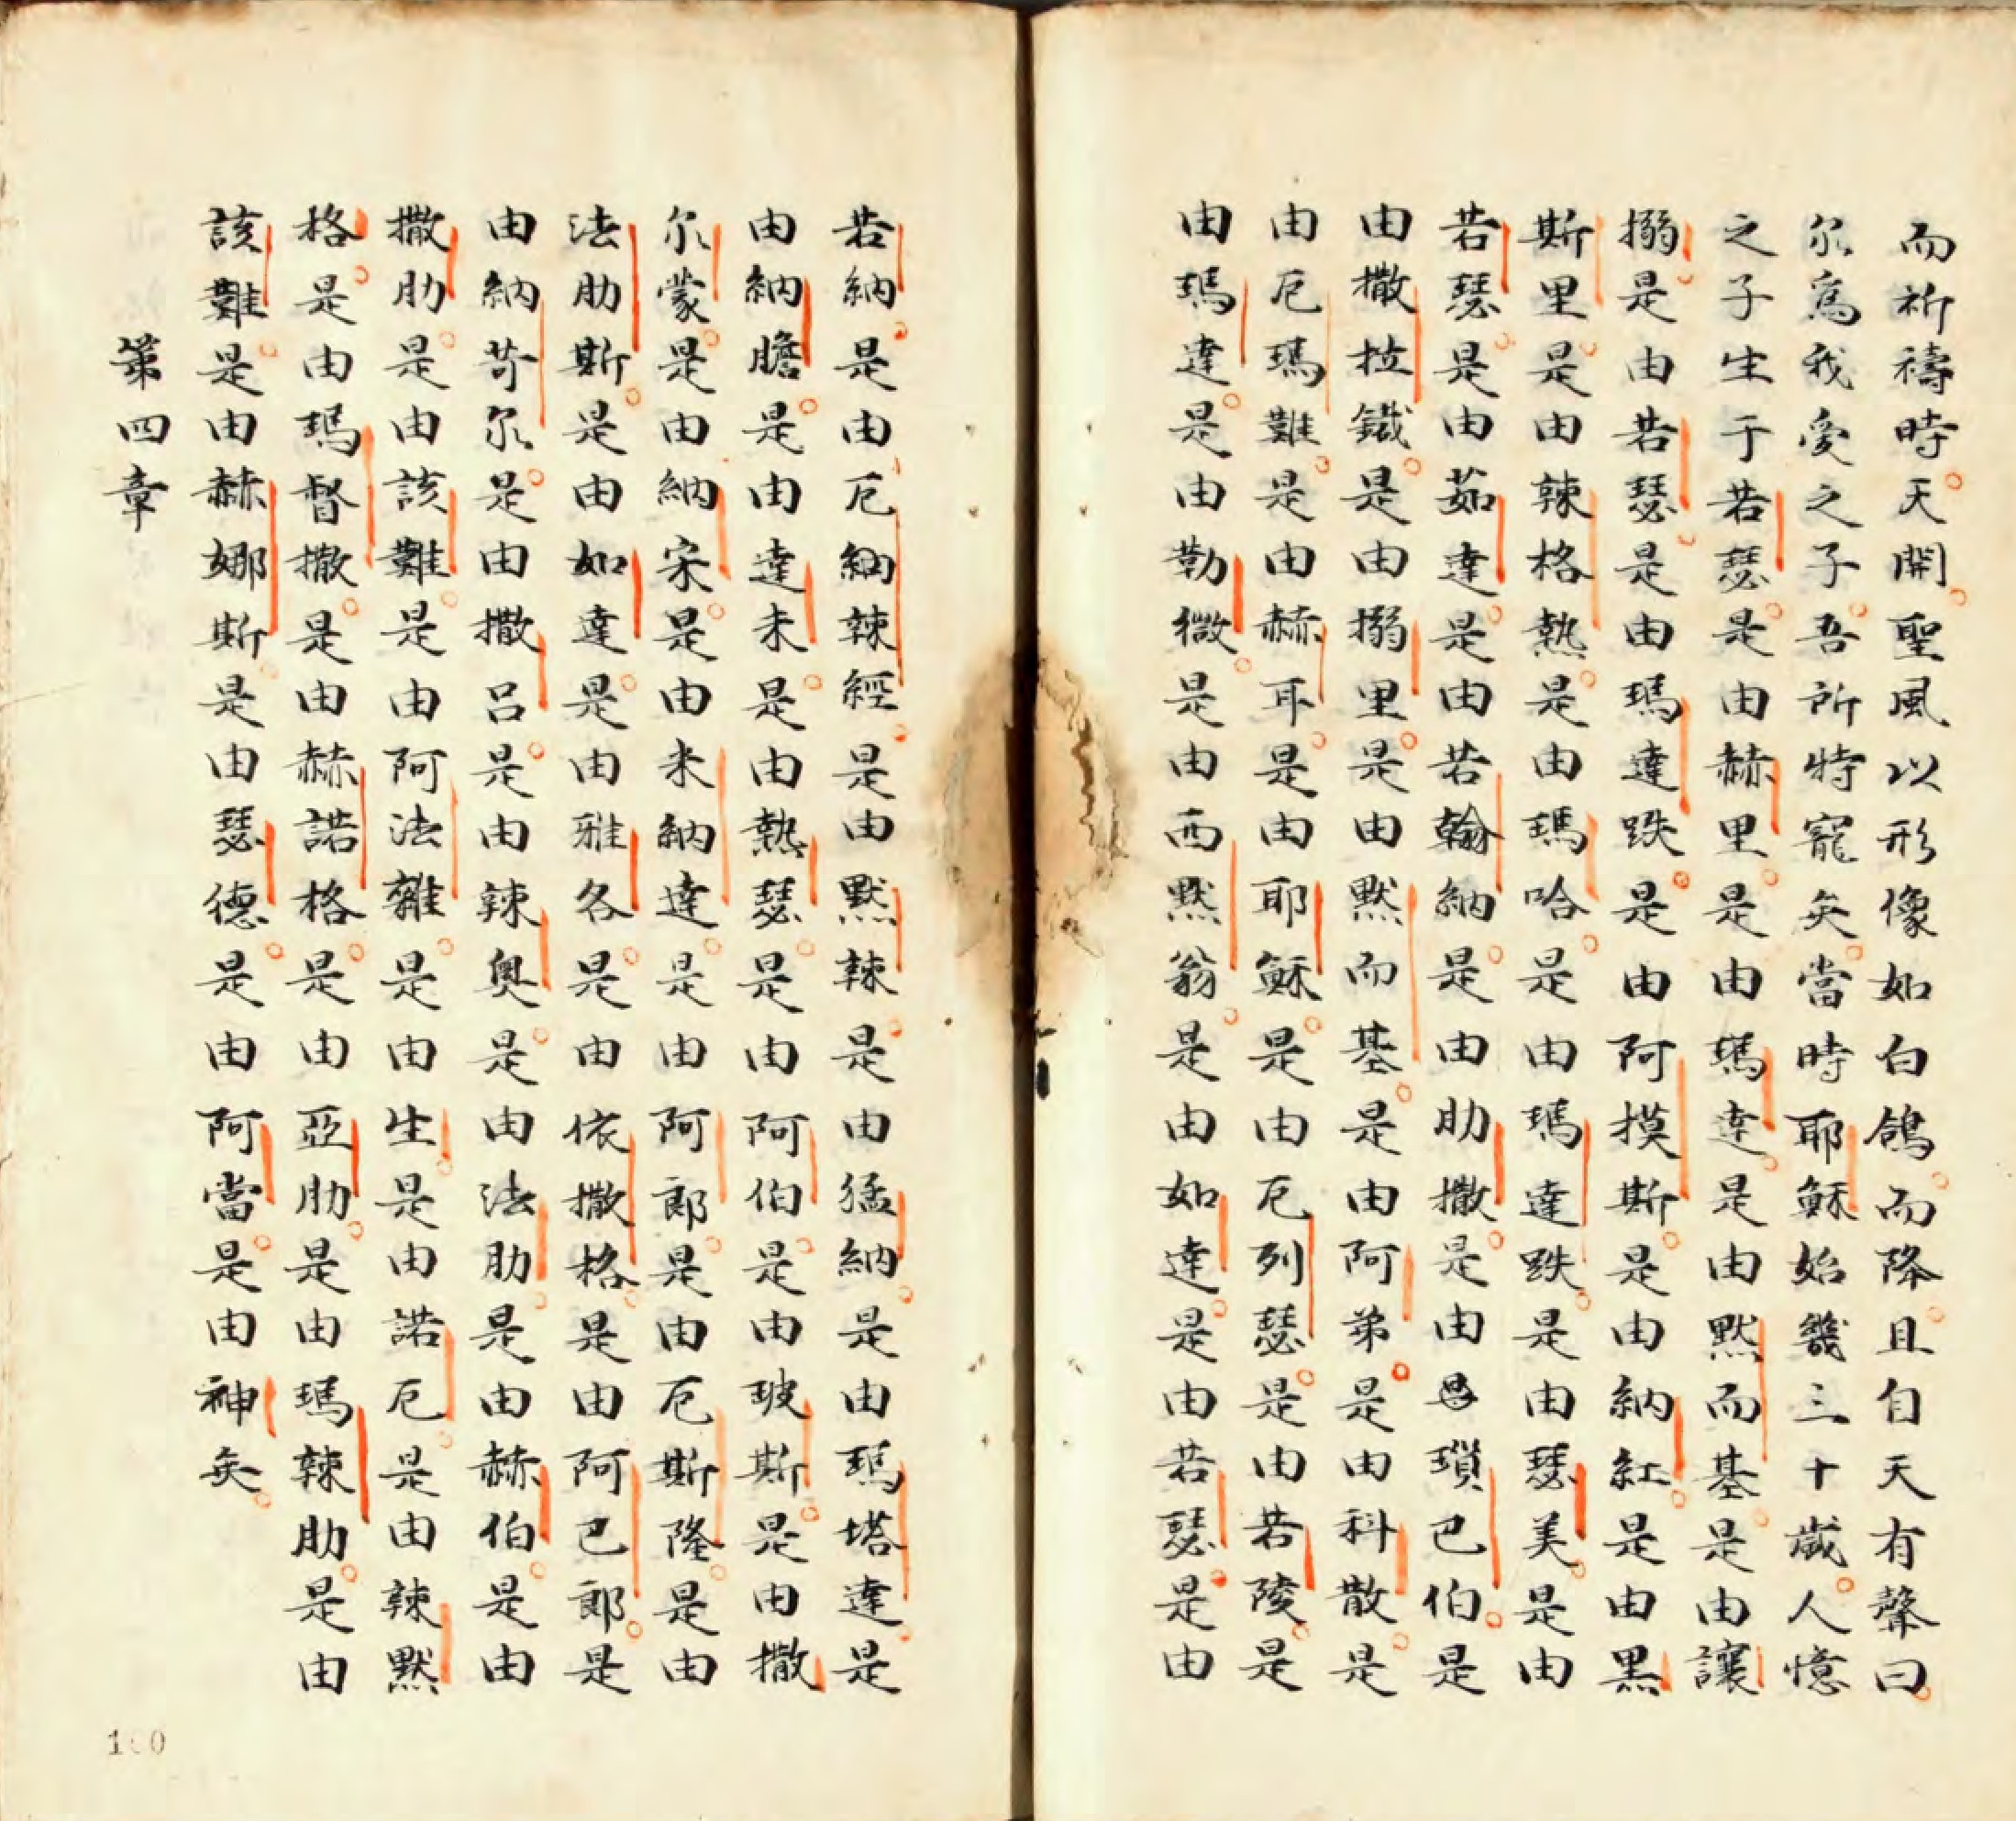 而祈禱時。天開。聖風以形像如白鴿。而降。且自天有聲曰。
尔為我愛之子。吾所特寵矣。當時耶穌始幾三十歲。人憶
之子生于若瑟。是由赫里。是由瑪達。是由默而基。是由讓
搦。是由若瑟。是由瑪達跌。是由阿摸斯。是由納紅。是由黑
斯里。是由辣格熱。是由瑪哈。是由瑪達跌。是由瑟美。是由
若瑟。是由茹達。是由若翰納。是由肋撒。是由瑣巴伯。是
由撒拉鐵。是由搦里。是由默而基。是由阿弟。是由科散。是
由厄瑪難。是由赫耳。是由耶穌。是由厄列瑟。是由若陵。是
由瑪達。是由勒微。是由西默翁。是由如達。是由若瑟。是由
若納。是由厄納辣經。是由默辣。是由猛納。是由瑪塔達。是
由納膽。是由達未。是由熱瑟。是由阿伯。是由玻斯。是由撒
尔蒙。是由納宋。是由米納達。是由阿郎。是由厄斯隆。是由
法肋斯。是由如達。是由雅各。是由依撒格。是由阿巴郎。是
由納苛尔。是由撒呂。是由辣奧。是由法肋。是由赫伯。是由
撒肋。是由該難。是由阿法雜。是由生。是由諾厄。是由辣默
格。是由瑪督撒。是由赫諾格。是由亞肋。是由瑪辣肋。是由
該難。是由赫娜斯。是由瑟德。是由阿當。是由神矣。
第四章
100